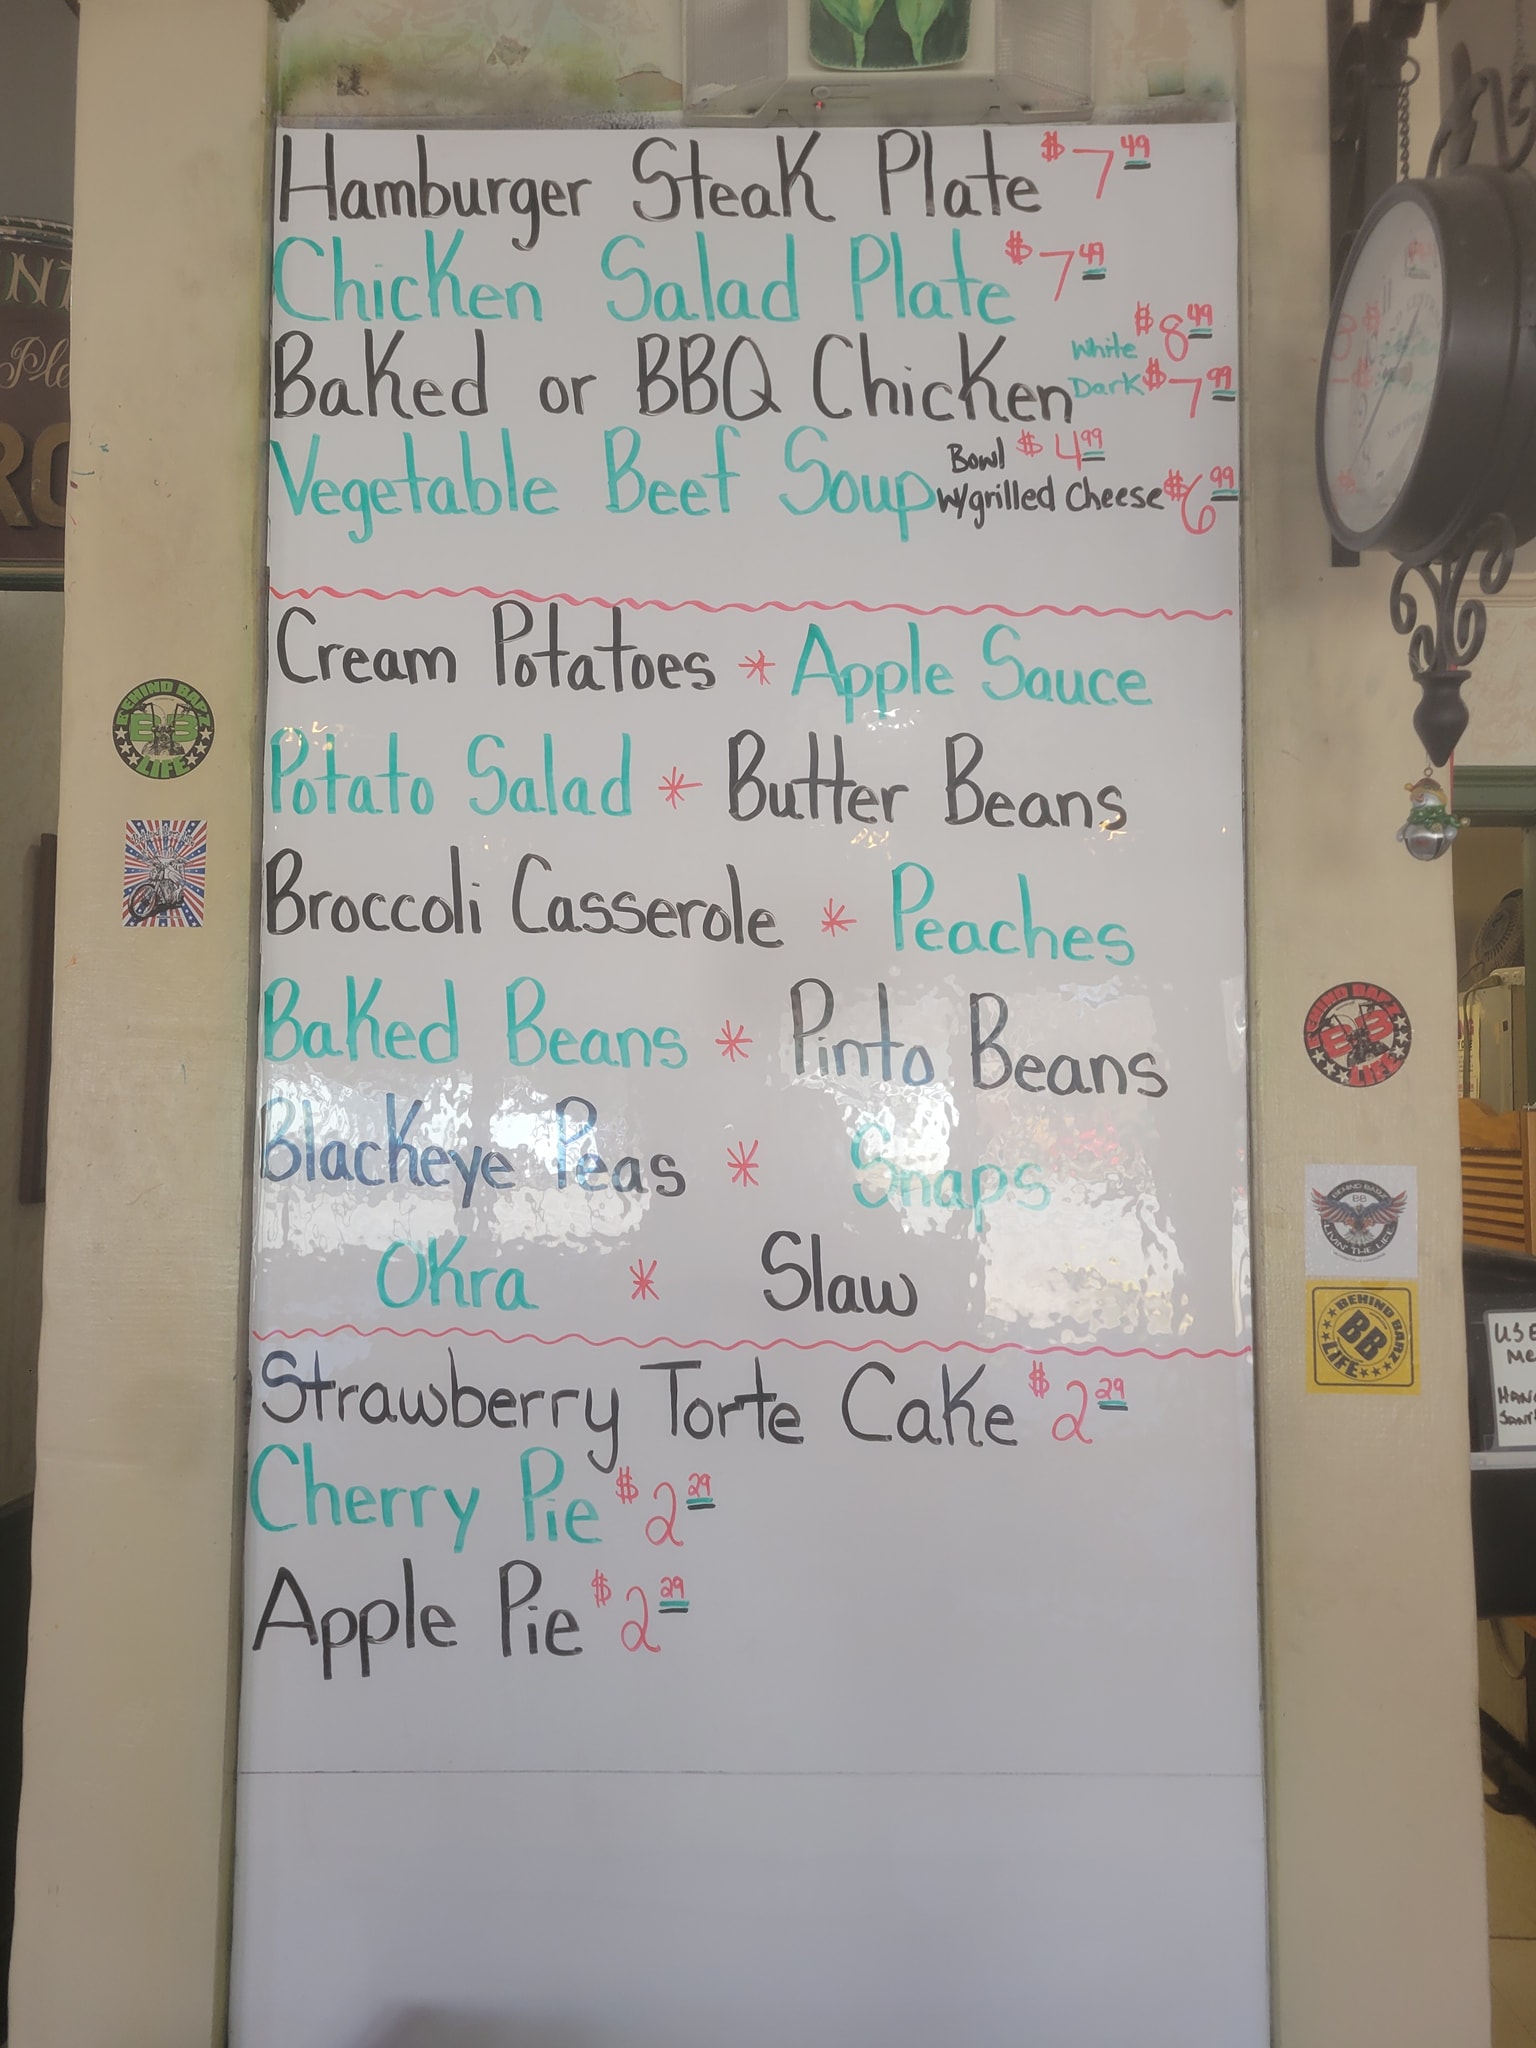 Hamburger Steak Plate $7.49
Chicken Salad Plate $7.49
Baked or BBQ Chicken White $8.49
Dark $7.99
Vegetable Beef Soup Bowl $4.99
w/grilled Cheese $6.99
Cream Potatoes * Apple Sauce
Potato Salad * Butter Beans
Broccoli Casserole * Peaches
Baked Beans * Pinto Beans
Blackeye Peas * Snaps
Okra * Slaw
Strawberry Torte Cake $2.29
Cherry Pie $2.29
Apple Pie $2.29
BEHIND BARZ
BB
LIFE
BEHIND BARZ
BB
LIFE
BEHIND BARZ
BB
LIVIN' THE LIFE
BEHIND BARZ
BB
LIFE